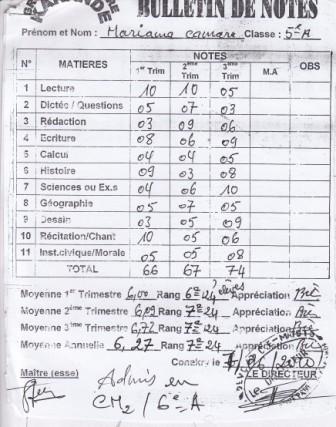 BULLETIN DE NOTES
Prénom et Nom : Mariama camara Classe : 5e A
N° MATIERES NOTES M.A OBS
1er Trim 2ème Trim 3ème Trim
1 Lecture 10 10 05
2 Dictée / Questions 05 07 03
3 Rédaction 03 09 06
4 Ecriture 08 06 09
5 Calcul 04 04 05
6 Histoire 09 03 08
7 Sciences ou Ex.s 04 06 10
8 Géographie 05 07 05
9 Dessin 03 05 09
10 Récitation/Chant 10 05 06
11 Inst.civique/Morale 05 05 08
TOTAL 66 67 74
Moyenne 1er Trimestre 6,00 Rang 6e 24 élèves Appréciation
Moyenne 2ème Trimestre 6,09 Rang 7e 24 Appréciation
Moyenne 3ème Trimestre 6,72 Rang 7e 24 Appréciation
Moyenne Annuelle 6,27 Rang 7e 24 Appréciation
Conakry le
Maître (esse) LE DIRECTEUR
Admis en
CM2 / 6e A